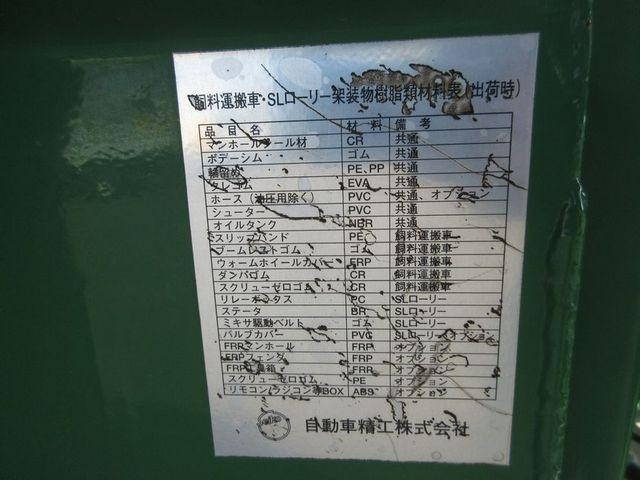 飼料運搬車・SLローリー架装物樹脂類材料表(出荷時)
品目名 材料 備考
マンホールシール材 CR 共通
ボデーシム ゴム 共通
輪留め PE、PP 共通
タレゴム EVA 共通
ホース(油圧用除く) PVC 共通、オプション
シューター PVC 共通
オイルタンク NBR 共通
スリップバンド PE 飼料運搬車
ブームレストゴム ゴム 飼料運搬車
ウォームホイールカバー FRP 飼料運搬車
ダンパゴム CR 飼料運搬車
スクリューゼロゴム CR 飼料運搬車
リレー PC SLローリー
ステータ BR SLローリー
ミキサ駆動ベルト ゴム SLローリー
バルブカバー PVC SLローリー、オプション
FRPマンホール FRP オプション
FRPフェンダ FRP オプション
FRP工具箱 FRP オプション
スクリューゼロゴム PE オプション
リモコン(ラジコン等)BOX ABS オプション
自動車精工株式会社